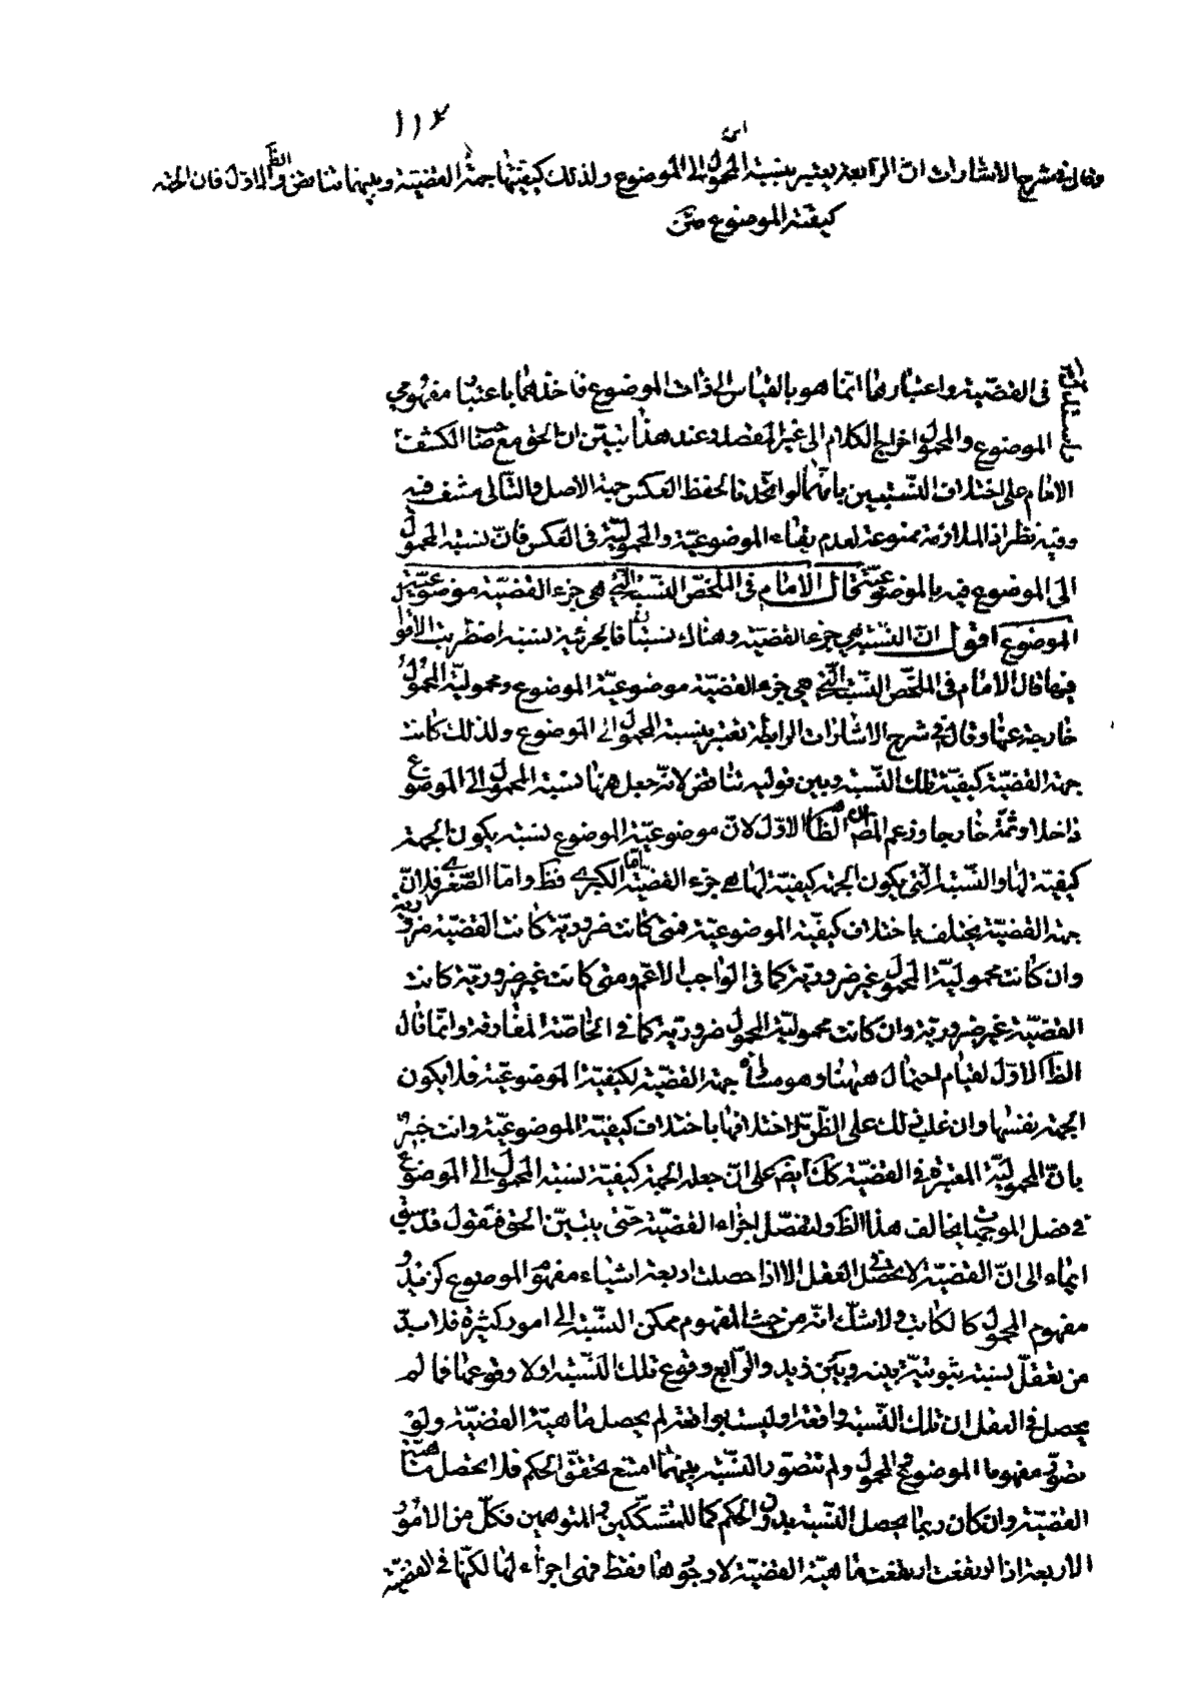 ١١٤
وقال في شرح الاشارات ان الرابعة يعتبر بنسبة المحمول الى الموضوع ولذلك كيفيتها جهة القضية وبينهما تناقض والظ الاول فان الجهة
كيفية الموضوع متن
في القضية واعتبارهما انما هو بالقياس الى ذات الموضوع فاخذهما باعتبار مفهومي
الموضوع والمحمول اخراج الكلام الى غير المفصل وعند هذا تبين ان الحق مع صنا الكشف
الامام على اختلاف النسبتين بانهما لو اتحدتا لحفظ العكس جهة الاصل والتالى منتف فيه
وفيه نظر اذ الملازمة ممنوعة لعدم بقاء الموضوعية والمحمولية في العكس فان نسبة المحمول
الى الموضوع فيه بالموضوعية قال الامام في الملخص النسبة التي هي جزء القضية موضوعية
الموضوع اقول ان النسبة هي جزء القضية وهناك نسبتان فاي جزئية نسبة اضطربت الاقوا
فيها قال الامام في الملخص النسبة التي هي جزء القضية موضوعية الموضوع ومحمولية المحمول
خارجة عنها وقال في شرح الاشارات الرابطة تعتبر بنسبة المحمول الى الموضوع ولذلك كانت
جهة القضية كيفية تلك النسبة وبين قوليه تناقض لانه جعل ههنا نسبة المحمول الى الموضوع
داخلا وثمة خارجا وزعم المص ان الظ الاول لان موضوعية الموضوع نسبة يكون الجهة
كيفية لها والنسبة التي يكون الجهة كيفية لها هي جزء القضية اما الكبرى فظ واما الصغرى فلان
جهة القضية يختلف باختلاف كيفية الموضوعية فمتى كانت ضرورية كانت القضية ضرورية
وان كانت محمولية المحمول غير ضرورية كما في الواجب الاعم ومتى كانت غير ضرورية كانت
القضية غير ضرورية وان كانت محمولية المحمول ضرورية كما في الخاصة المفارقة وانما قال
الظ الاول لقيام احتمال ههنا وهو مساواة جهة القضية لكيفية الموضوعية فلا يكون
الجهة نفسها وان غلب ذلك على الظن لاختلافها باختلاف كيفية الموضوعية وانت خبير
بان المحمولية المعتبرة في القضية كك ايضا على ان جعله الجهة كيفية نسبة المحمول الى الموضوع
في فصل الموجهات يخالف هذا الظ ولنفصل اجزاء القضية حتى يتبين الحق فنقول قد سبق
ايماء الى ان القضية لا يحصل في العقل الا اذا حصلت اربعة اشياء مفهوم الموضوع كزيد و
مفهوم المحمول كالكاتب ولا شك انه من حيث المفهوم ممكن النسبة الى امور كثيرة فلا بد
من تعقل نسبة ثبوتية بينه وبين زيد والرابع وقوع تلك النسبة او لا وقوعها فما لم
يحصل في العقل ان تلك النسبة واقعة او ليست بواقعة لم يحصل ماهية القضية ولو
تصور مفهوما الموضوع والمحمول ولم تتصور النسبة بينهما امتنع تحقق الحكم فلا يحصل ماهية
القضية وان كان ربما يحصل النسبة بدون الحكم كما للمتشككين والمتوهمين فكل من الامور
الاربعة اذا ارتفعت ارتفعت ماهية القضية لا وجودها فقط فهى اجزاء لها لكنها في القضية